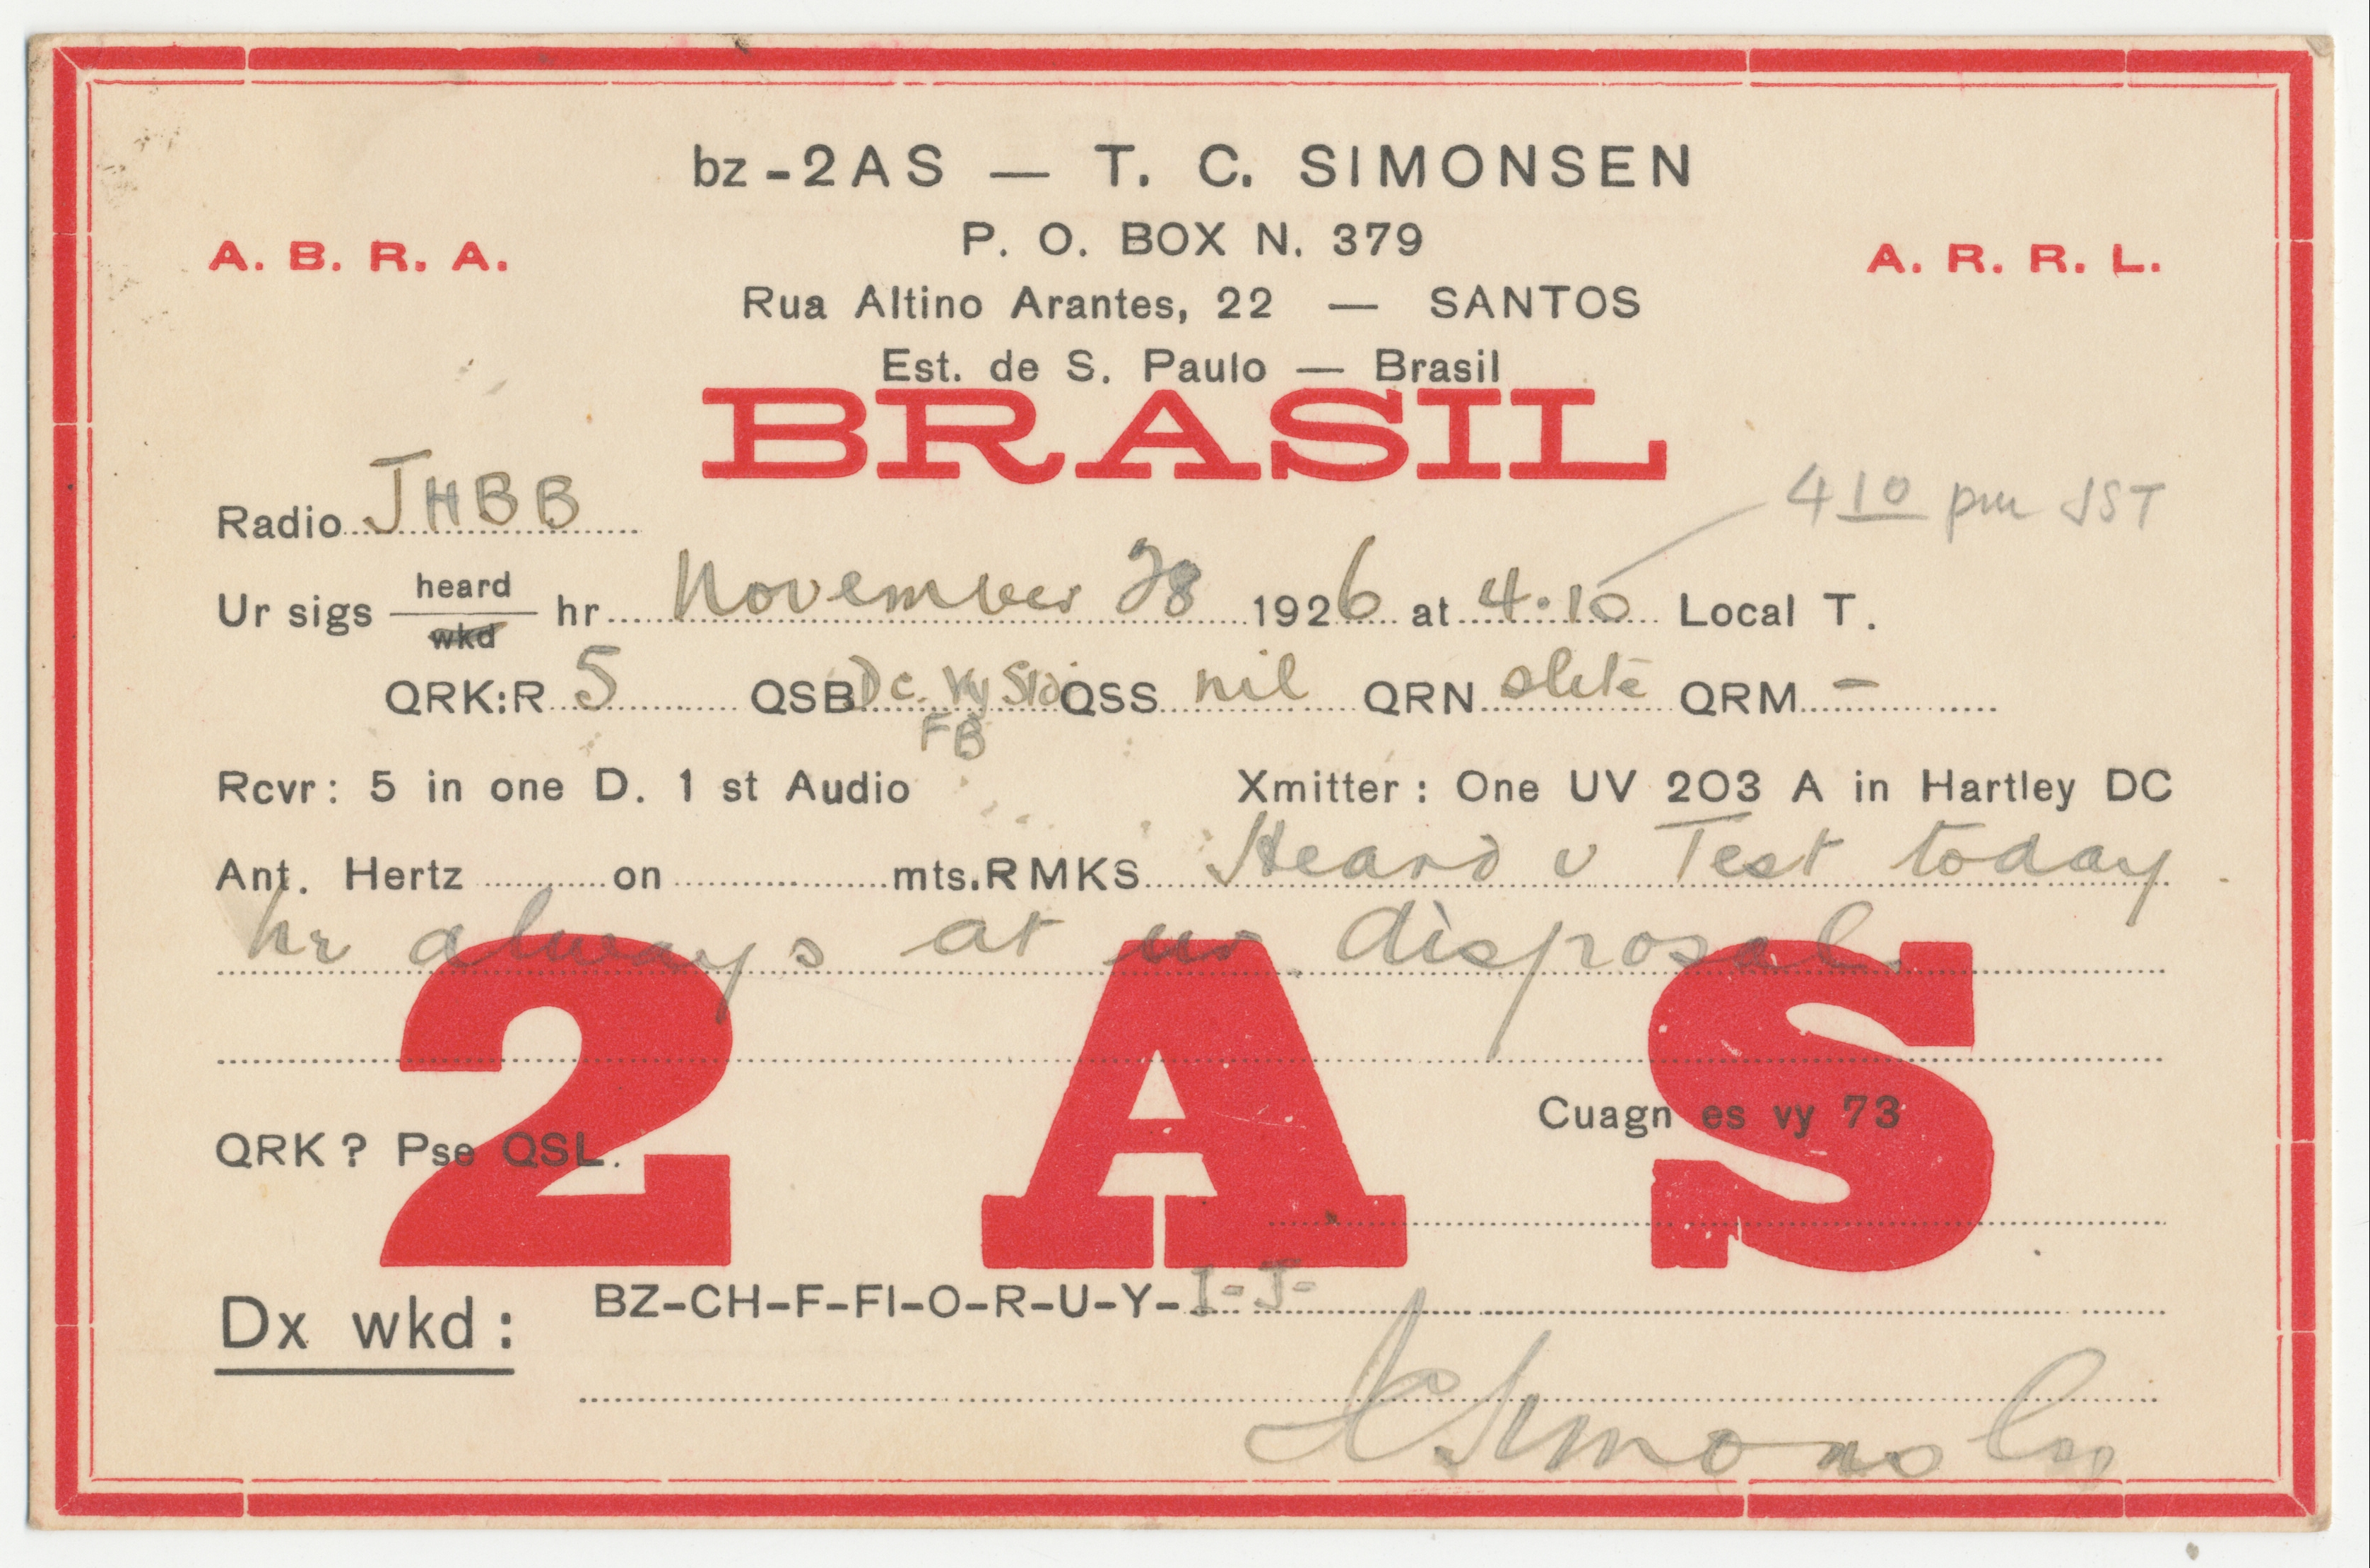 bz-2AS — T. C. SIMONSEN
P. O. BOX N. 379
A. B. R. A.
A. R. R. L.
Rua Altino Arantes, 22 — SANTOS
Est. de S. Paulo — Brasil
BRASIL
410 pm JST
Radio JHBB
Ur sigs heard wkd hr November 28 1926 at 4.10 Local T.
QRK:R 5 QSB Dc. Vy QSS nil QRN slite QRM –
FB
Rcvr: 5 in one D. 1 st Audio Xmitter: One UV 203 A in Hartley DC
Ant. Hertz on mts. RMKS Heard v Test today
hr always at ur disposal.
2AS
Cuagn es vy 73
QRK? Pse QSL.
Dx wkd: BZ-CH-F-FI-O-R-U-Y-I-J-